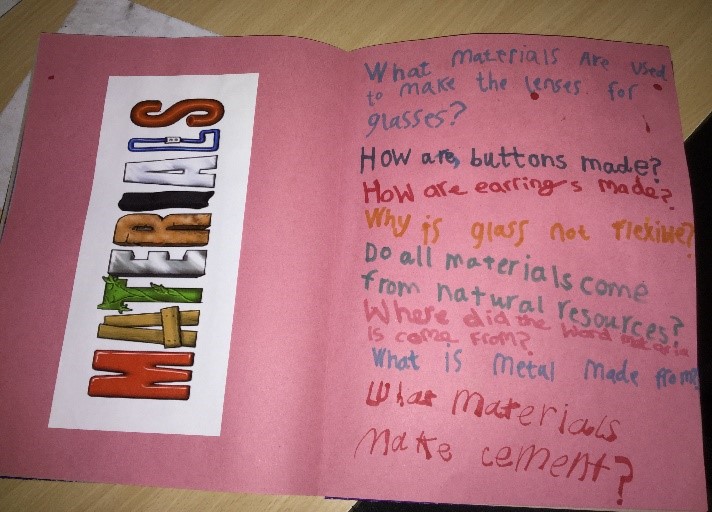 MATERIALS
What materials are used
to make the lenses for
glasses?
How are, buttons made?
How are earring's made?
Why is glass not flexiue?
Do all materials come
from natural resources?
Where did the word materia
ls come from?
What is metal made from?
What materials
make cement?